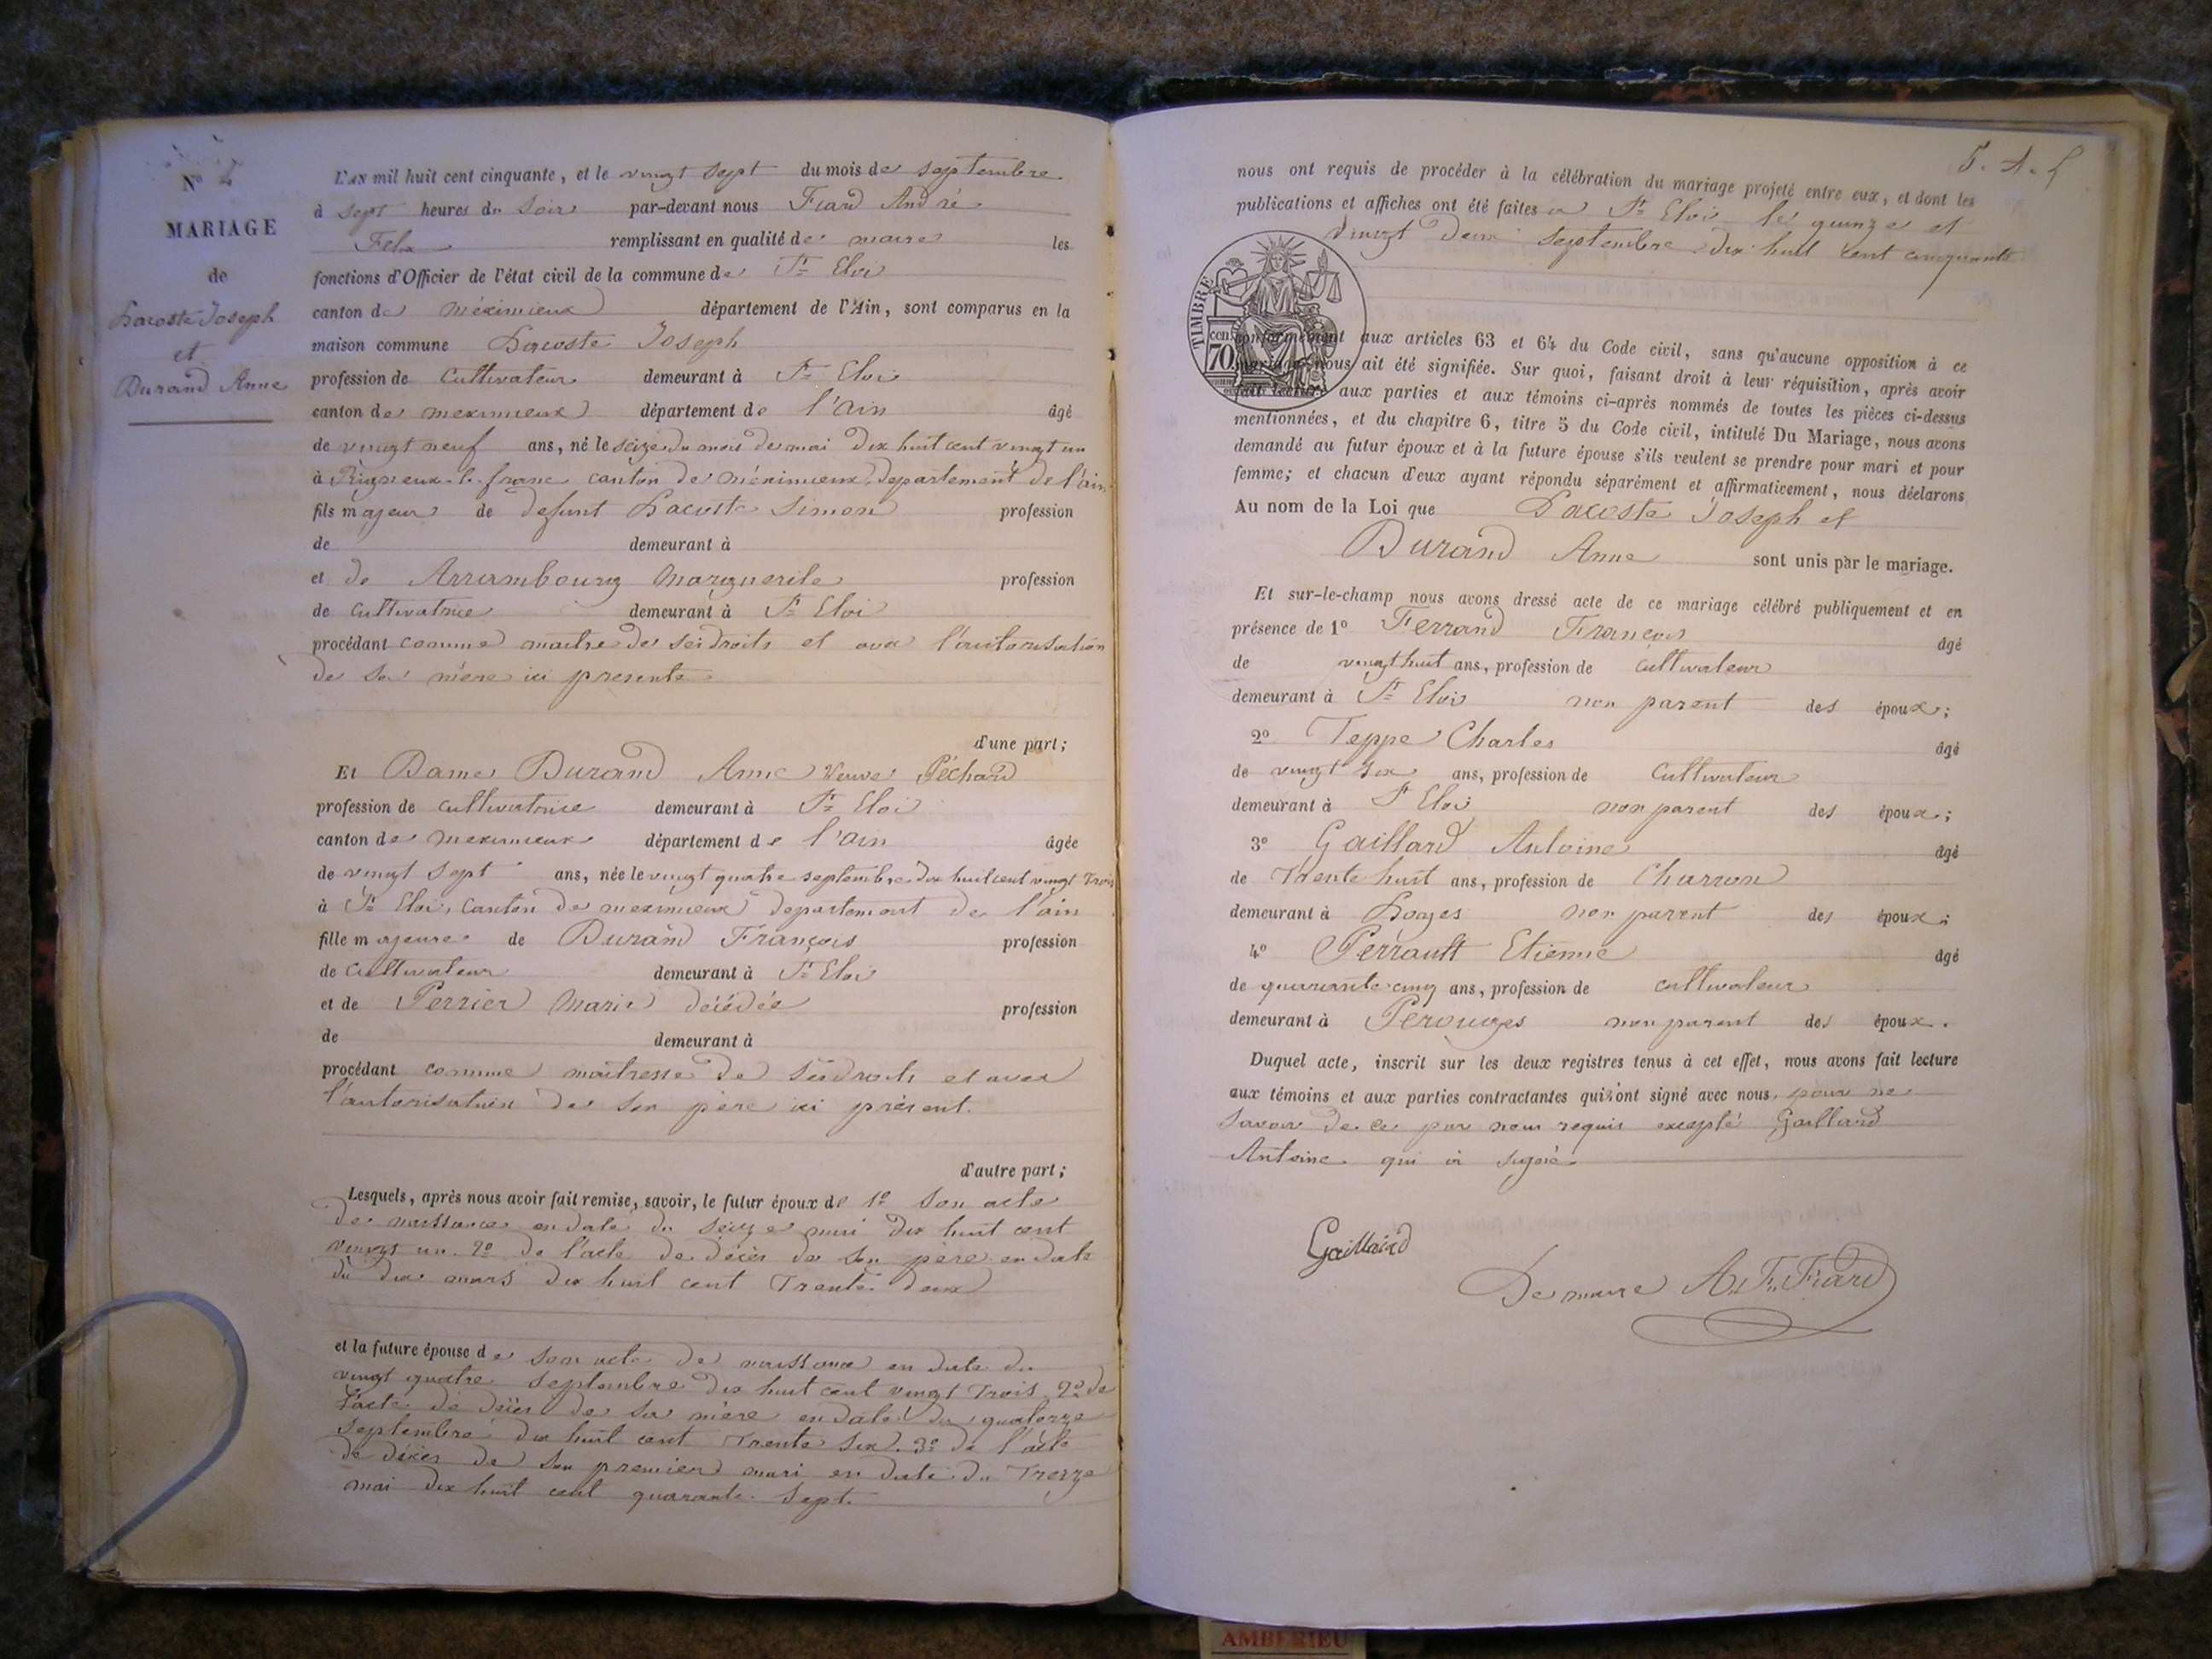 No 4
MARIAGE
de
Lacoste Joseph
et
Durand Anne
L'AN mil huit cent cinquante, et le vingt sept du mois de septembre
à sept heures du soir par-devant nous Fiard André
Félix remplissant en qualité de maire les
fonctions d'Officier de l'état civil de la commune de St Eloi
canton de méximieux département de l'Ain, sont comparus en la
maison commune Lacoste Joseph
profession de cultivateur demeurant à St Eloi
canton de meximieux département de l'ain âgé
de vingt neuf ans, né le seize du mois de mai dix huit cent vingt un
à Rigneux-le-franc canton de méximieux, departement de l'ain
fils majeur de defunt Lacoste Simon profession
de demeurant à
et de Marguerite profession
de cultivatrice demeurant à St Eloi
procédant comme maitre de ses droits et avec l'autorisation
de sa mère ici presente
d'une part;
Et Dame Durand Anne Veuve Péchard
profession de cultivatrice demeurant à St Eloi
canton de meximieux département de l'ain âgée
de vingt sept ans, née le vingt quatre septembre dix huit cent vingt trois
à St Eloi, canton de meximieux departement de l'ain
fille majeure de Durand François profession
de cultivateur demeurant à St Eloi
et de Perrier Marie décédée profession
de demeurant à
procédant comme maîtresse de ses droits et avec
l'autorisation de son père ici présent.
d'autre part;
Lesquels, après nous avoir fait remise, savoir, le futur époux de 1o son acte
de naissance en date du seize mai dix huit cent
vingt un. 2o de l'acte de décès de son père en date
du dix mars dix huit cent trente deux
et la future épouse de son acte de naissance en date du
vingt quatre septembre dix huit cent vingt trois 2o de
l'acte de décès de sa mère en date du quatorze
septembre dix huit cent trente six. 3o de l'acte
de décès de son premier mari en date du treize
mai dix huit cent quarante sept.
nous ont requis de procéder à la célébration du mariage projeté entre eux, et dont les
publications et affiches ont été faites a St Eloi le quinze et
vingt deux septembre dix huit cent cinquante
TIMBRE
70 cen
conformément aux articles 63 et 64 du Code civil, sans qu'aucune opposition à ce
mariage nous ait été signifiée. Sur quoi, faisant droit à leur réquisition, après avoir
fait lecture aux parties et aux témoins ci-après nommés de toutes les pièces ci-dessus
mentionnées, et du chapitre 6, titre 5 du Code civil, intitulé Du Mariage, nous avons
demandé au futur époux et à la future épouse s'ils veulent se prendre pour mari et pour
femme; et chacun d'eux ayant répondu séparément et affirmativement, nous déclarons
Au nom de la Loi que Lacoste Joseph et
Durand Anne sont unis par le mariage.
Et sur-le-champ nous avons dressé acte de ce mariage célébré publiquement et en
présence de 1o Ferrand François âgé
de vingt huit ans, profession de cultivateur
demeurant à St Eloi non parent des époux;
2o Teppe Charles âgé
de vingt six ans, profession de cultivateur
demeurant à St Eloi non parent des époux;
3o Gaillard Antoine âgé
de trente huit ans, profession de Charron
demeurant à Loyes non parent des époux;
4o Perrault Etienne âgé
de quarante cinq ans, profession de cultivateur
demeurant à Perouges non parent des époux.
Duquel acte, inscrit sur les deux registres tenus à cet effet, nous avons fait lecture
aux témoins et aux parties contractantes qui n'ont signé avec nous, pour ne
savoir de ce par nous requis excepté Gaillard
Antoine qui a signé
Gaillaird
Le maire A. F. Fiard
AMBERIEU